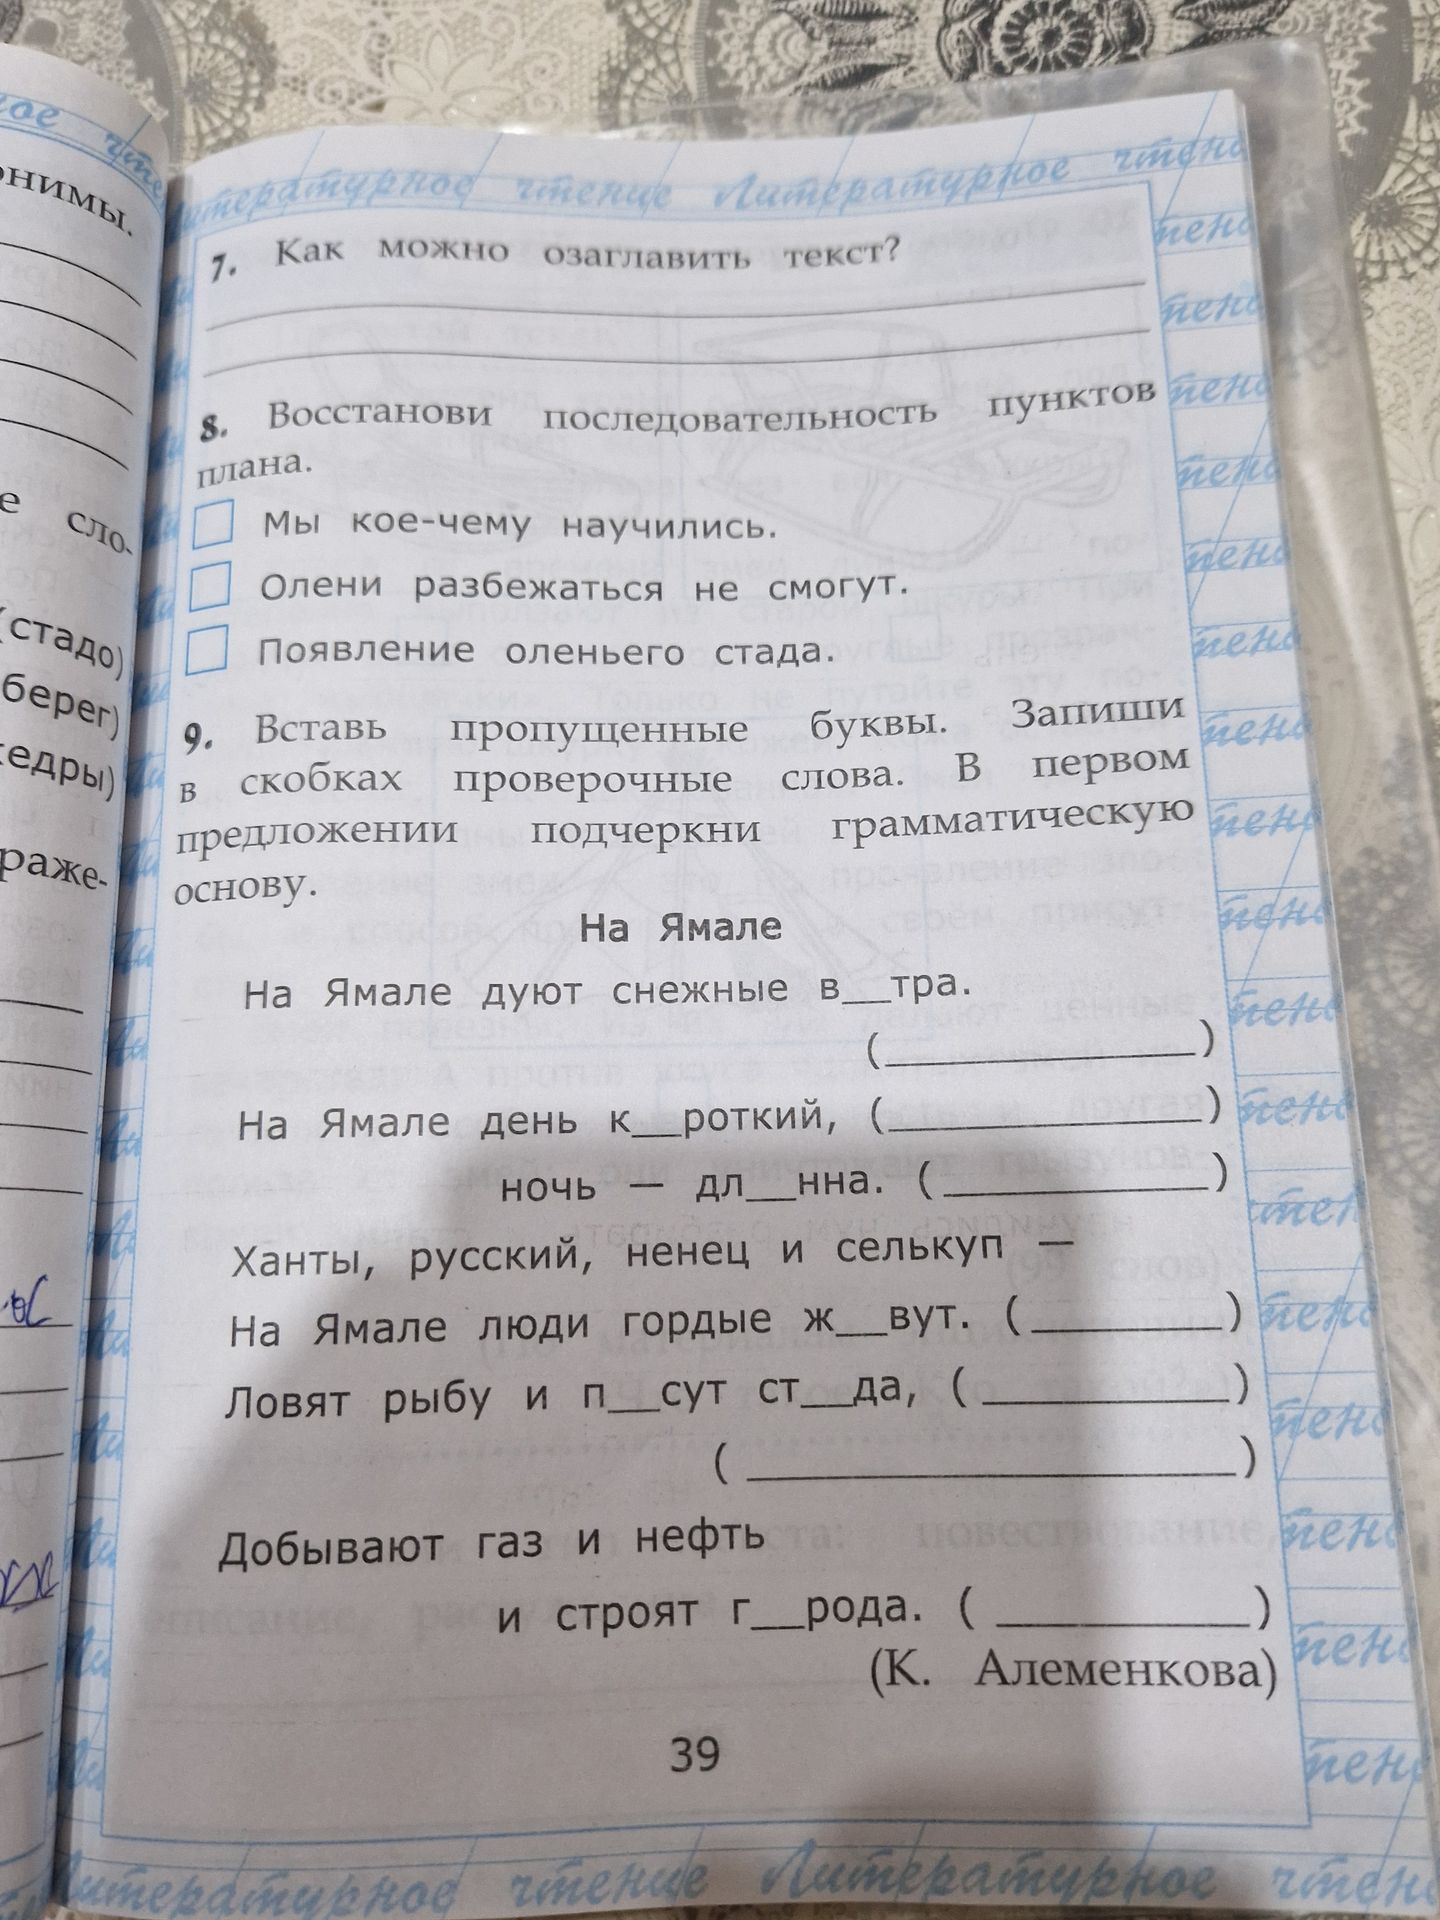 Литературное чтение Литературное чтено
онимы.
7. Как можно озаглавить текст?
8. Восстанови последовательность пунктов
плана.
Мы кое-чему научились.
е сло-
Олени разбежаться не смогут.
(стадо)
Появление оленьего стада.
берег)
9. Вставь пропущенные буквы. Запиши
кедры)
в скобках проверочные слова. В первом
предложении подчеркни грамматическую
раже-
основу.
На Ямале
На Ямале дуют снежные в__тра.
(__________)
На Ямале день к__роткий, (__________)
ночь — дл__нна. (__________)
Ханты, русский, ненец и селькуп —
На Ямале люди гордые ж__вут. (________)
Ловят рыбу и п__сут ст__да, (__________)
(__________________)
Добывают газ и нефть
и строят г__рода. (__________)
(К. Алеменкова)
39
Литературное чтение Литературное чтен